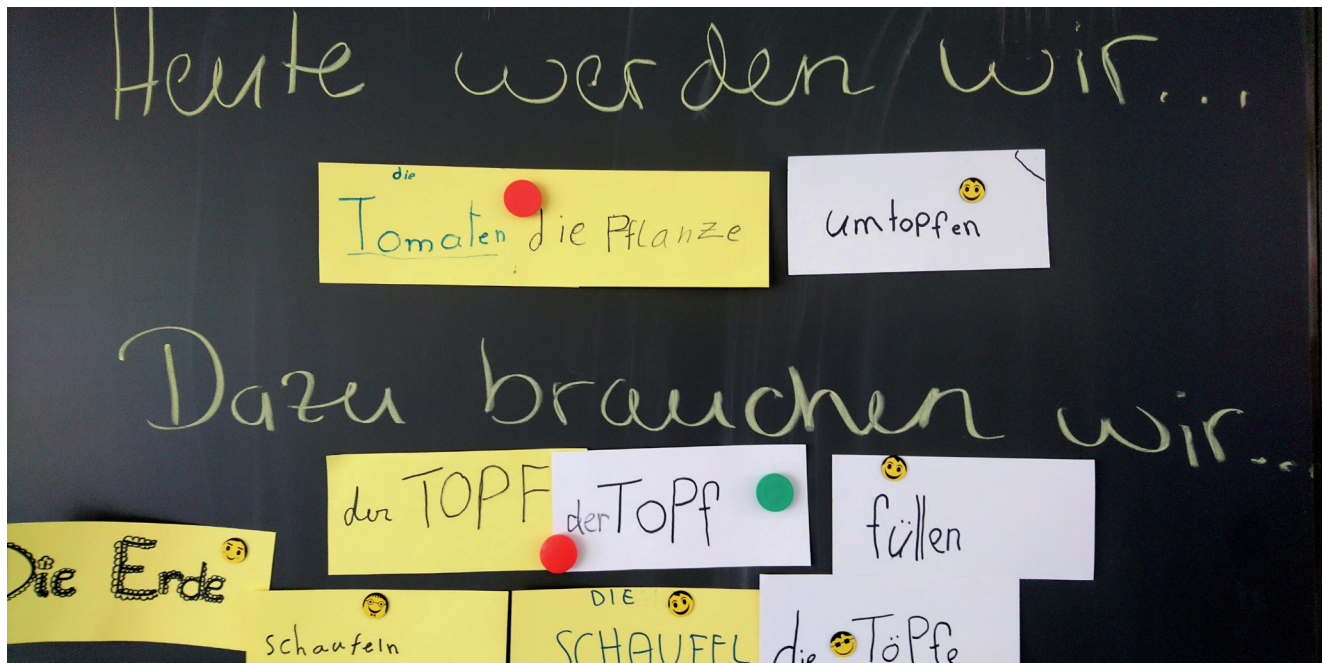 Heute werden wir...
die
Tomaten die Pflanze
umtopfen
Dazu brauchen wir...
der TOPF
der ToPf
füllen
Die Ende
schaufeln
DIE
SCHAUFEL
die TöPfe